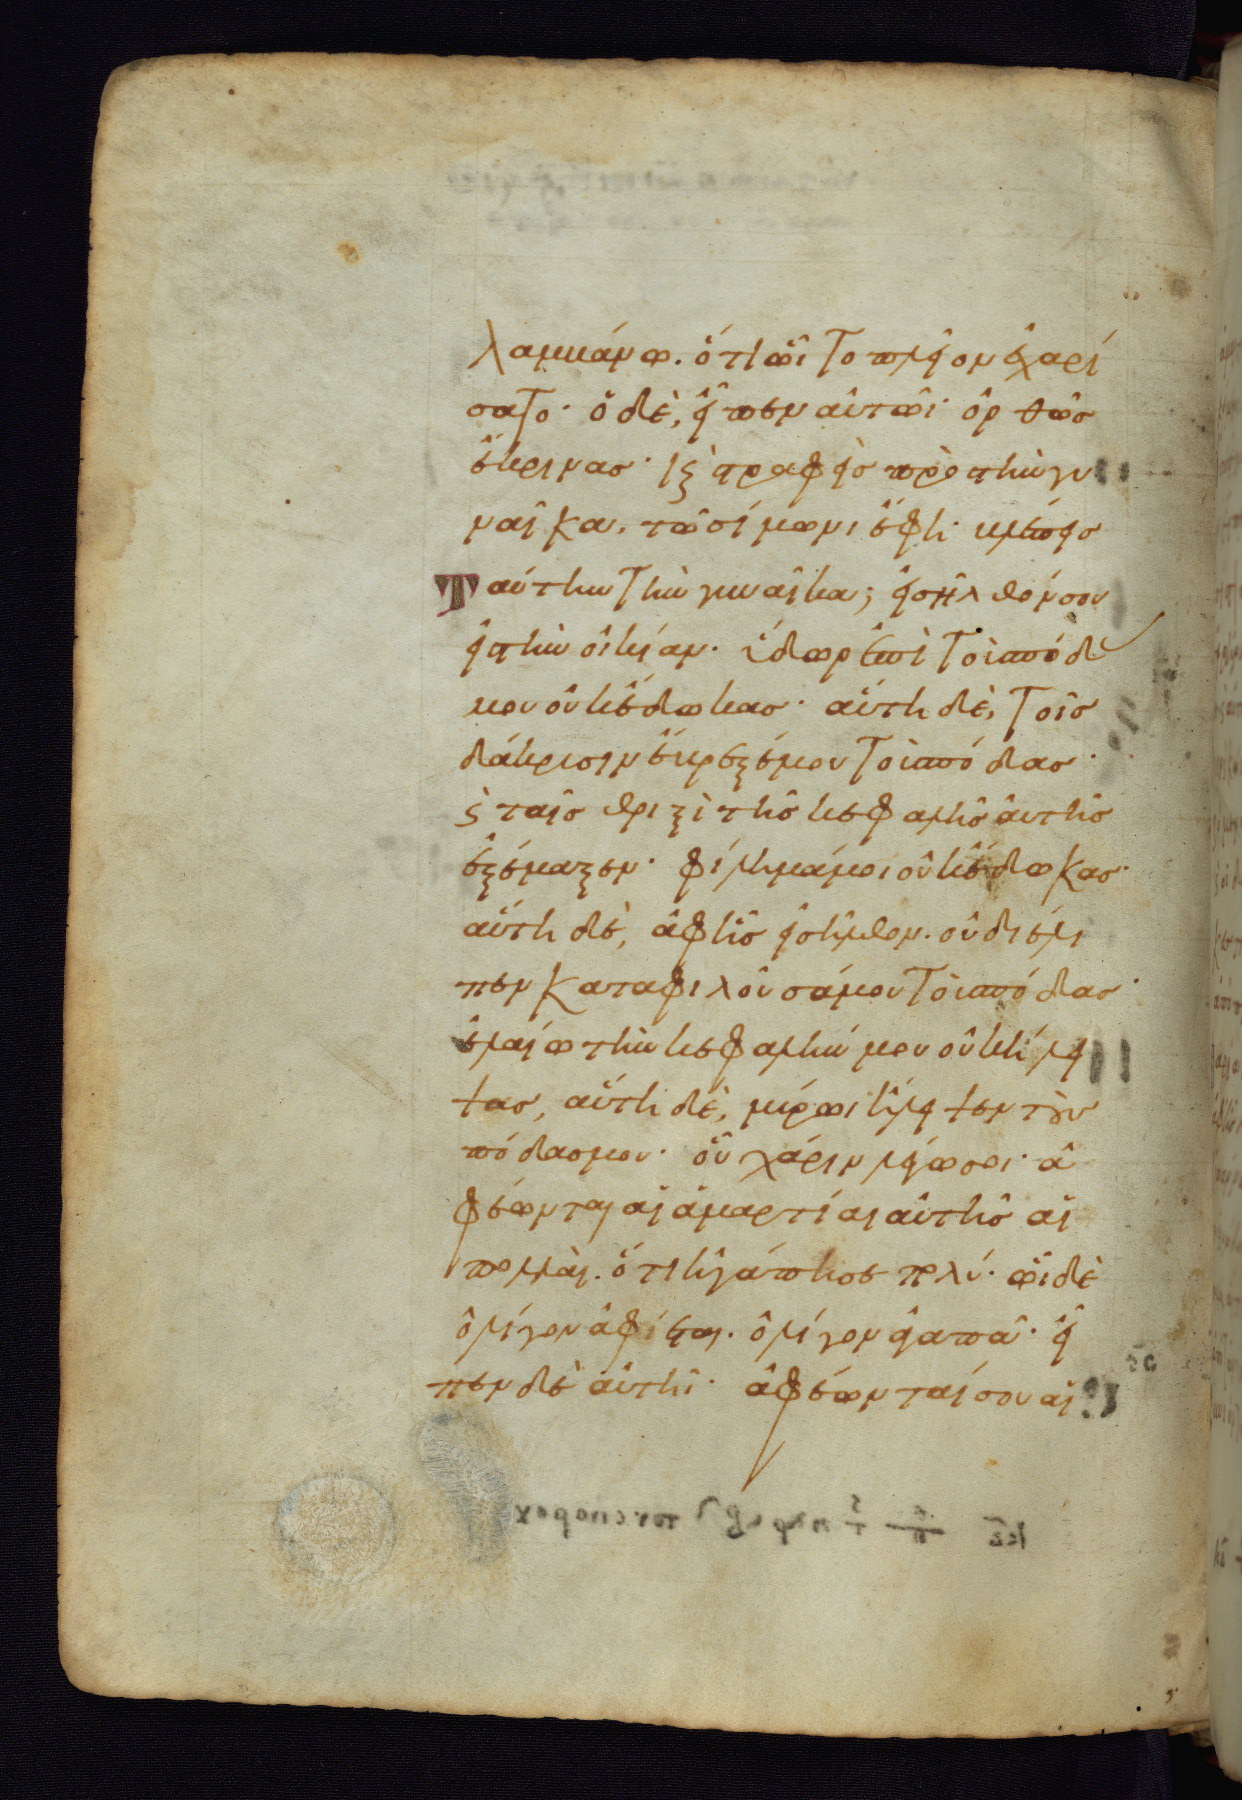 λαμβάνω. ὅτι ὧι το πλεῖον ἐχαρί
σατο· ὁ δὲ, εἶπεν αὐτῶι· ὀρθῶς
ἔκρινας· κ στραφεὶς πρὸς τὴν γυ
ναῖκα. τῶ σίμωνι ἔφη· βλέπεις
Ταύτην τὴν γυναῖκα; εἰσῆλθόν σου
εἰς τὴν οἰκίαν. ὕδωρ ἐπὶ τοὺς πόδας
μου οὐκ ἔδωκας· αὕτη δὲ, τοῖς
δάκρυσιν ἔβρεξέ μου τοὺς πόδας·
κ ταῖς θριξὶ τῆς κεφαλῆς αὐτῆς
ἐξέμαξεν· φίλημά μοι οὐκ ἔδωκας·
αὕτη δὲ, ἀφ ἧς εἰσῆλθον. οὐ διέλι
πεν καταφιλοῦσά μου τοὺς πόδας·
ἐλαίω τὴν κεφαλήν μου οὐκ ἤλει
ψας, αὕτη δὲ, μύρωι ἤλειψεν τοὺς
πόδας μου· οὗ χάριν λέγω σοι· ἀ
φέωνται αἱ ἁμαρτίαι αὐτῆς αἱ
πολλαὶ. ὅτι ἠγάπησε πολύ· ὧι δὲ
ὀλίγον ἀφίεται. ὀλίγον ἀγαπᾶ· εἶ
πεν δὲ αὐτῆι· ἀφέωνταί σου αἱ